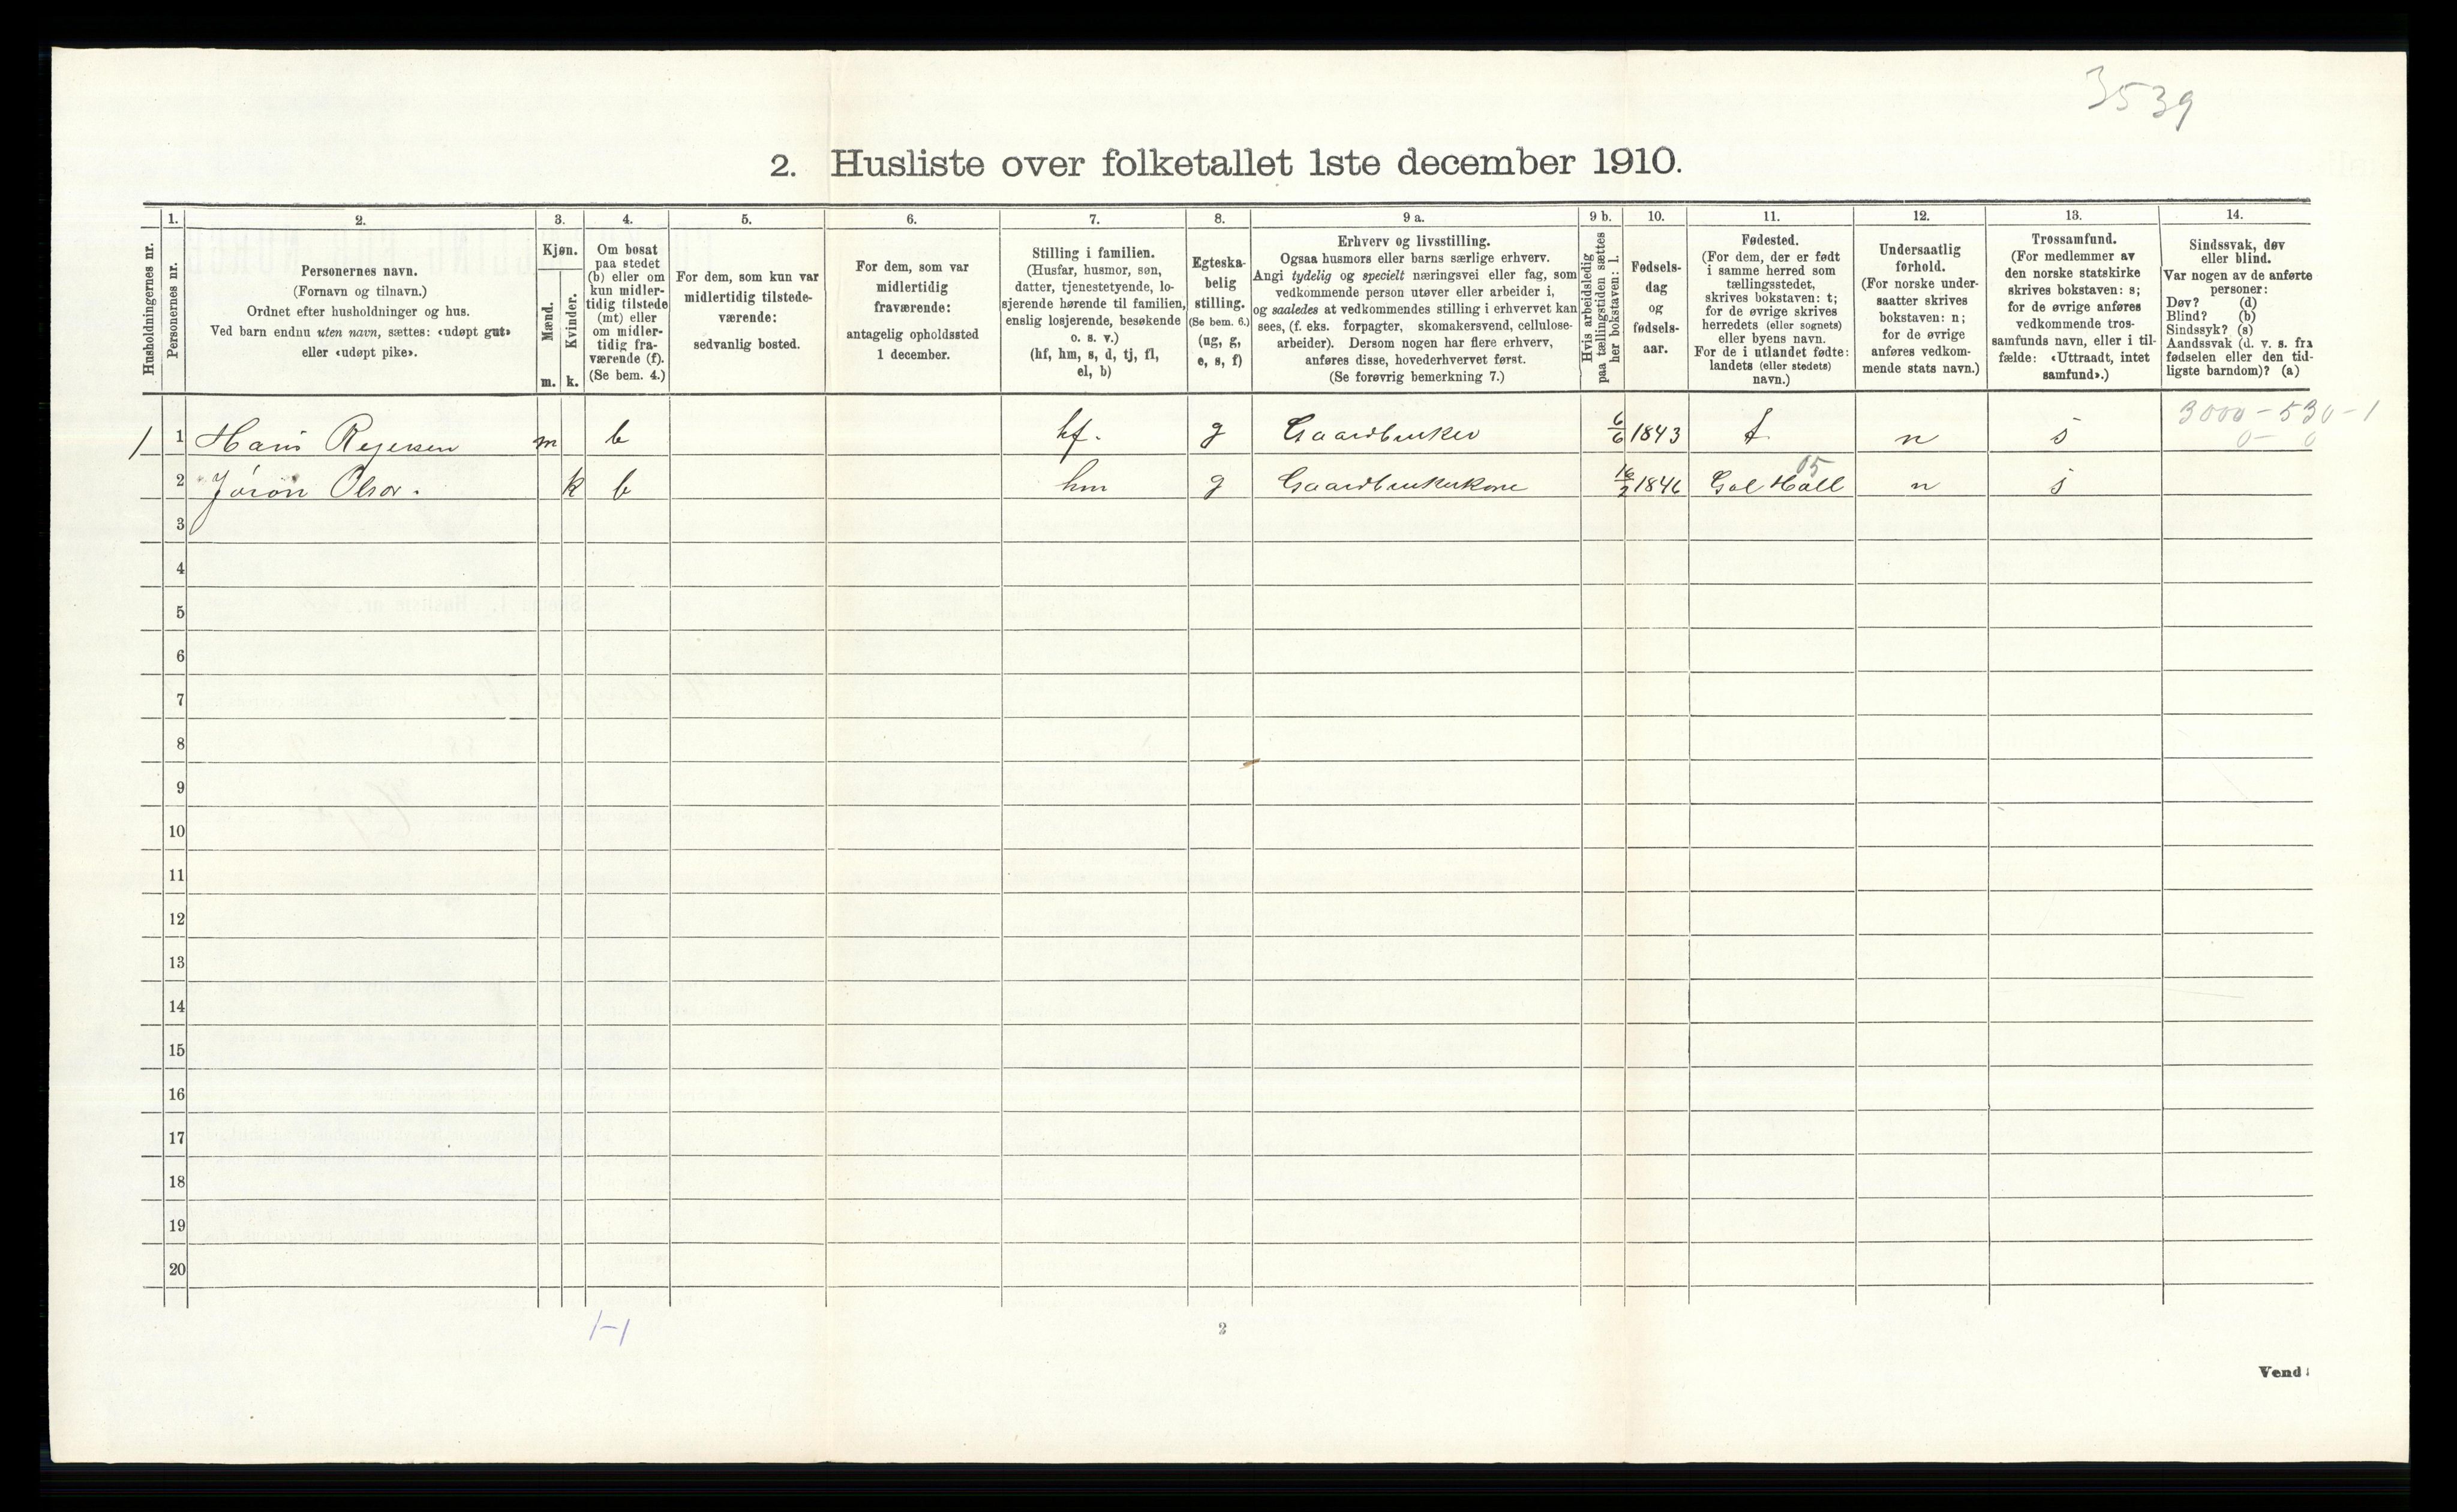 3539
2. Husliste over folketallet 1ste december 1910.
Husholdningernes nr.
1.
Personernes nr.
2.
Personernes navn.
(Fornavn og tilnavn.)
Ordnet efter husholdninger og hus.
Ved barn endnu uten navn, sættes: «udøpt gut»
eller «udøpt pike».
3.
Kjøn.
Mænd.
Kvinder.
m.
k.
4.
Om bosat
paa stedet
(b) eller om
kun midler-
tidig tilstede
(mt) eller
om midler-
tidig fra-
værende (f).
(Se bem. 4.)
5.
For dem, som kun var
midlertidig tilstede-
værende:
sedvanlig bosted.
6.
For dem, som var
midlertidig
fraværende:
antagelig opholdssted
1 december.
7.
Stilling i familien.
(Husfar, husmor, søn,
datter, tjenestetyende, lo-
sjerende hørende til familien,
enslig losjerende, besøkende
o. s. v.)
(hf, hm, s, d, tj, fl,
el, b)
8.
Egteska-
belig
stilling.
(Se bem. 6.)
(ug, g,
e, s, f)
9 a.
Erhverv og livsstilling.
Ogsaa husmors eller barns særlige erhverv.
Angi tydelig og specielt næringsvei eller fag, som
vedkommende person utøver eller arbeider i,
og saaledes at vedkommendes stilling i erhvervet kan
sees, (f. eks. forpagter, skomakersvend, cellulose-
arbeider). Dersom nogen har flere erhverv,
anføres disse, hovederhvervet først.
(Se forøvrig bemerkning 7.)
9 b.
Hvis arbeidsledig
paa tællingstiden sættes
her bokstaven: l.
10.
Fødsels-
dag
og
fødsels-
aar.
11.
Fødested.
(For dem, der er født
i samme herred som
tællingsstedet,
skrives bokstaven: t;
for de øvrige skrives
herredets (eller sognets)
eller byens navn.
For de i utlandet fødte:
landets (eller stedets)
navn.)
12.
Undersaatlig
forhold.
(For norske under-
saatter skrives
bokstaven: n;
for de øvrige
anføres vedkom-
mende stats navn.)
13.
Trossamfund.
(For medlemmer av
den norske statskirke
skrives bokstaven: s;
for de øvrige anføres
vedkommende tros-
samfunds navn, eller i til-
fælde: «Uttraadt, intet
samfund».)
14.
Sindssvak, døv
eller blind.
Var nogen av de anførte
personer:
Døv? (d)
Blind? (b)
Sindssyk? (s)
Aandssvak (d. v. s. fra
fødselen eller den tid-
ligste barndom)? (a)
3000-530-1
0-0
1 1 Hans Rejersen m b hf. g Gaardbruker 6/6 1843 t n s
05
2 Jøron Olsor. k b hm g Gaardbrukerkone 1846 Gol Hall n s
3
4
5
6
7
8
9
10
11
12
13
14
15
16
17
18
19
20
1-1
2
Vend!